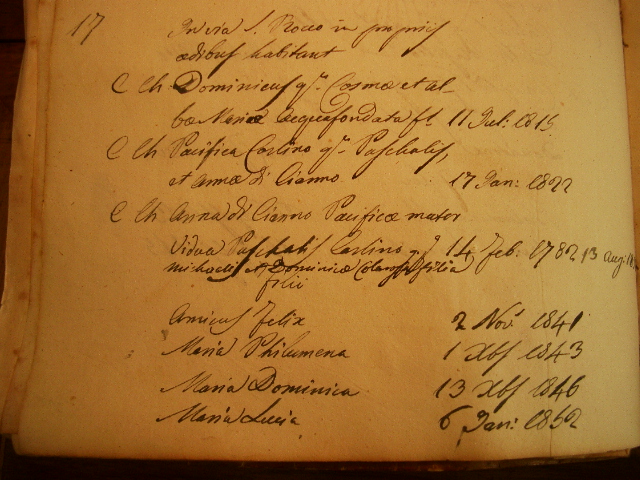 17 In via S. Rocco in propriis
ædibus habitant
C Ch Dominicus qm. Cosmæ et al-
bæ Mariæ Acquafondata fl 11 Jul: 1815
C Ch Pacifica Carlino qm. Paschalis,
et Annæ di Cianno 17 Jan: 1822
C Ch Anna di Cianno Pacificæ mater
Vidua Paschalis Carlino 14 Feb: 1782 13 Aug:
Michaelis et Dominicæ filia
filii
Amicus Felix 2 Nov 1841
Maria Philumena 1 Xbs 1843
Maria Dominica 13 Xbs 1846
Maria Lucia 6 Jan: 1852